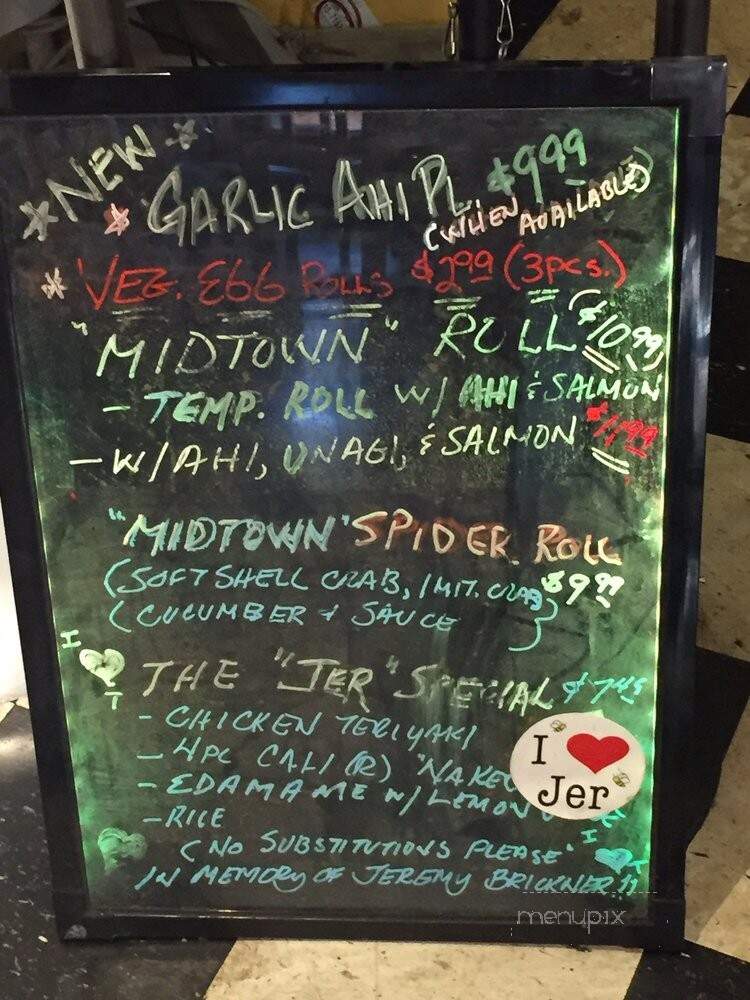 NEW
GARLIC AHI PL $9.99
(WHEN AVAILABLE)
VEG. EGG ROLLS $2.99 (3pcs.)
"MIDTOWN" ROLL $10.99
- TEMP. ROLL W/ AHI & SALMON
- W/ AHI, UNAGI, & SALMON $11.99
"MIDTOWN" SPIDER ROLL
(SOFT SHELL CRAB, IMIT. CRAB $9.99
(CUCUMBER & SAUCE
I
T
THE "JER" SPECIAL $7.45
- CHICKEN TERIYAKI
- 4PC CALI (R) "NAKED
- EDAMAME W/ LEMON
- RICE
I
Jer
(NO SUBSTITUTIONS PLEASE"
IN MEMORY OF JEREMY BRICKNER
menupix